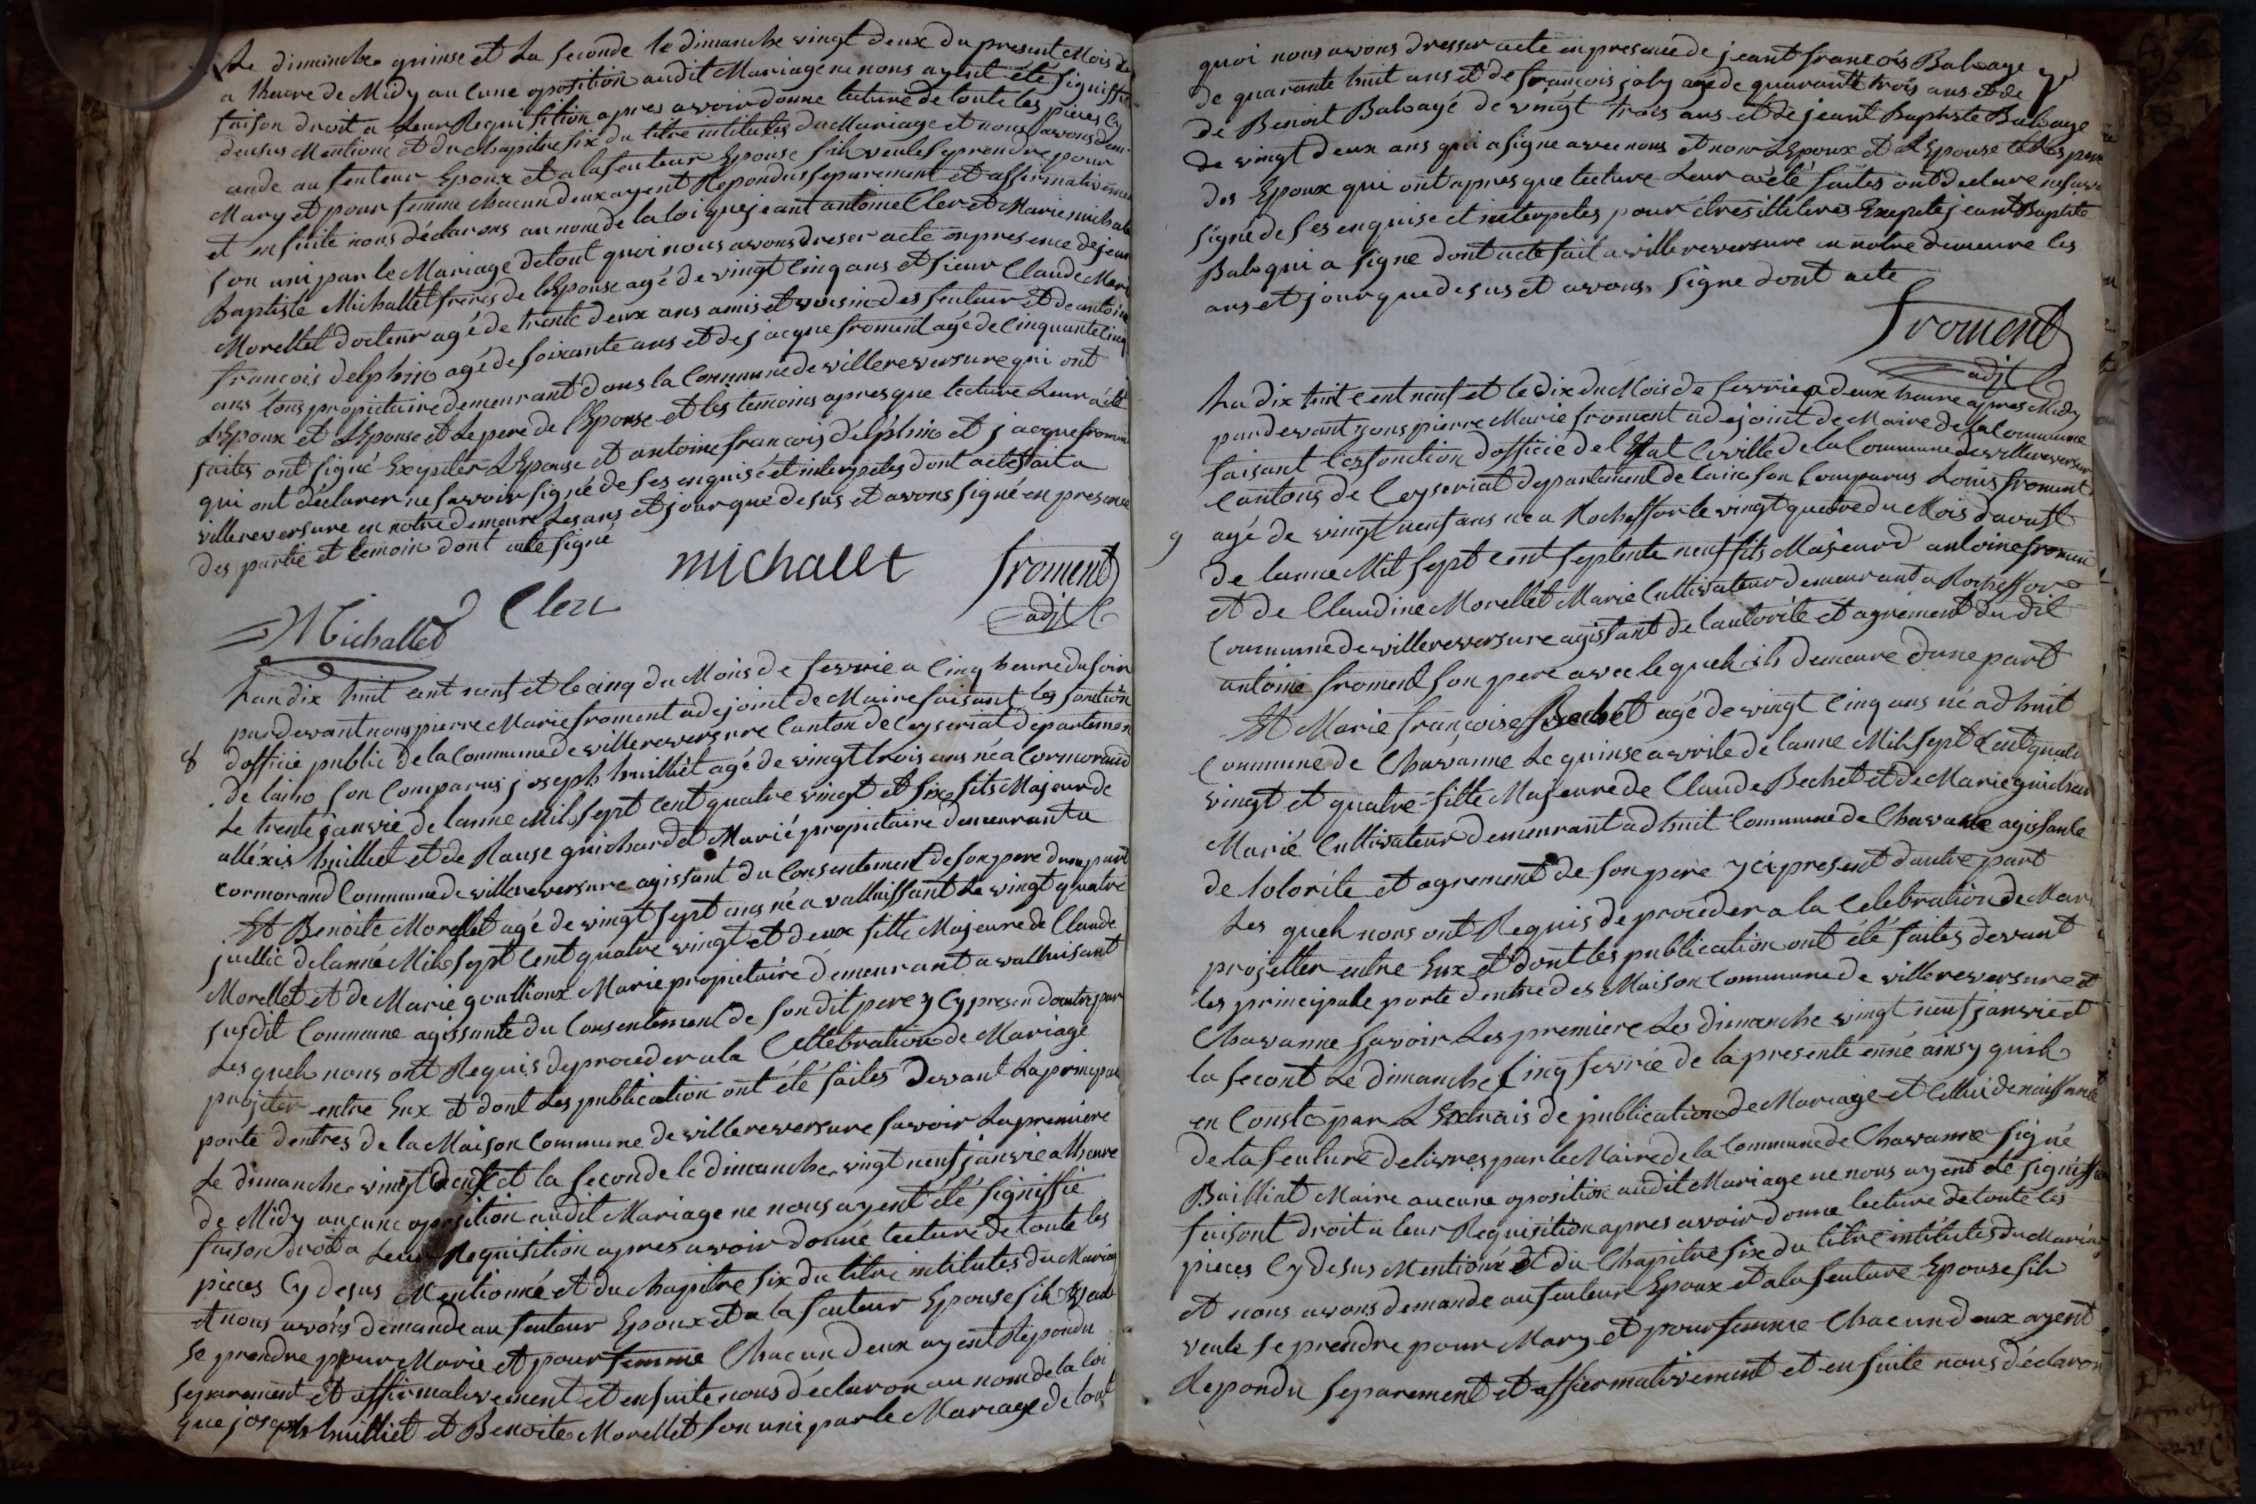 Le dimanche quinse et La seconde le dimanche vingt deux du present Mois de
a lheure de Midy aucune oposition audit Mariage ne nous ayent été signiffie
faison droit a Leur Requisition apres avoir donne lecture de toute les pieces cy
desus Mentionné et du chapitre six du titre intitulés du Mariage et nous avons dem
ande au feuteur Epoux et a la feuteur Epouse sih veule se prendre pour
Mary et pour femme chacun deux ayent Repondus separement et affirmativemen
et en suite nous déclarons au nom de la loi que jeant antoine Cler et Marie michale
son uni par le Mariage de tout quoi nous avons dreser acte en presence de jean
Baptiste Michallet freres de lEspouse agé de vingt Cinq ans et sieur Claude Mari
Morellet docteur agé de trente deux ans amis et voisin des feuteur et de antoine
francois delphin agé de soixante ans et de jacque froment agé de Cinquante Cinq
ans tous propietaire demeurant dans la Commune de villereversure qui ont
LEpoux et LEponse et Le pere de lEponse et les temoins apres que lecture Leur a été
faites ont signé Exepter LEpouse et antoine francois délphin et jacque fromen
qui ont déclarer ne savoir signé de ses enquisé et interpetes dont acte fait a
villereversure en notre demeure Les ans et jour que desus et avons signé en presence
des partie et temoin dont acte signé
michallet froment
Michallet Cler adjt
Lan dix huit cent neuf et le cinq du Mois de fevrie a Cinq heure du soir
pardevant nous pierre Marie froment adejoint de Maire faisant les fonction
8 dofficie public de la Commune de villereversure Canton de Ceyseriat departemen
de laino son Comparus joseph huilliet agé de vingt trois ans né a Cormorand
Le trente janvie de lanne Mil sept cent quatre vingt et six fits Majeur de
alléxis huilliet et de Rause guichardet Marié propietaire demeurant a
cormorand Commune de villereversure agissant du Consentement de son pere dune part
Et Benoite Morellet agé de vingt sept ans né a valluissant Le vingt quatre
juillie de lanné Mil sept cent quatre vingt et deux fille Majeure de Claude
Morellet et de Marie goullioux Marie propietaire demeurant a valhuisant
susdit Commune agissante du Consentement de son dit pere y cy presen dautre par
Les queh nous ont Requis de proceder a la Cellebration de Mariage
projeter entre Eux et dont Les publication ont été faites Devant La principal
porte dentres de la Maison Commune de villereversure savoir La premiere
Le dimanche vingt deux et la seconde le dimanche vingt neuf janvie a lheure
de Midy aucune oposition audit Mariage ne nous ayent été signiffie
faison droit a Leur Requisition apres avoir donné lecture de toute les
pieces Cy desus Mentionné et du chapitre six du titre intitutes du Maria
et nous avons demande au feuteur Epoux et a la feuteur Epouse sih veul
se prendre pour Marie et pour femme Chacun deux ayent Répondu
separement et affirmativement et ensuite nous déclaron au nom de la loi
que joseph huilliet et Benoite Morellet son uni par le Mariage de tout
quoi nous avons dresser acte en presence de jeant francois Balvaye
de quarante huit ans et de francois joly agé de quarante trois ans et de
de Benoit Balvayé de vingt trois ans et de jeant Baptiste Balvaye
de vingt deux ans qui a signe avec nous et non LEpoux et LEpouse et Les pere
des Epoux qui ont apres que lecture Leur a été faites ont declare ne savoi
signé de ses enquise et interpetes pour etres illiteres Exepte jeant Baptiste
Balv qui a signe dont acte fait a villereversure en notre demeure les
ans et jour que desus et avons signe dont acte
froment
adjt
Lan dix huit cent neuf et le dix du Mois de fevrie a deux heure apres Midy
pardevant nous pierre Marie froment adejoint de Maire de la Commune
faisant les fonction dofficie de lEtat Civille de la Commune de villereversur
Cantons de Ceyseriat departement de laino son Comparus Louis froment
9 agé de vingt neuf ans né a Rocheffor le vingt quatre du Mois davust
de lanne Mil sept cent septente neuf fits Majeur d antoine fromen
et de Claudine Morellet Marié Cultivateur demeurant a Rocheffor
Commune de villereversure agissant de lautorite et agrement du dit
antoine froment son pere avec le queh ih demeure dune part
Et Marie francoise Bechet agé de vingt Cinq ans né ad huit
Commune de Chavanne Le quinse avrile de lanne Mil sept Cent quatr
vingt et quatre fille Majeure de Claude Bechet et de Marie guichar
Marié Cultivateur demeurant ad huit Commune de Chavanne agissante
de lotorite et agrement de son pere y ci present dautre part
Les queh nous ont Requis de proceder a la Celebration de Mari
projetter entre Eux et dont les publication ont été faites devant
les principale porte dentre des Maison Commune de villereversure et
Chavanne savoir Les premiere Le dimanche vingt neuf janvie et
la second Le dimanche Cinq fevrie de la presente anné ainsy quih
en Conste par LExtrais de publication de Mariage et Cellui de naissance
de la feuture delivres par le Maire de la Commune de Chavanne signé
Builliat Maire aucune oposition audit Mariage ne nous ayent été signiffie
faisont droit a leur Requisition apres avoir donne lecture de toute les
pieces Cy desus Mentionné et du Chapitre six du titre intitutés du Maria
et nous avons demande au feuteur Epoux et a la feuture Epouse sih
veule se prendre pour Mary et pour femme Chacun deux ayent
Repondu separement et affirmativement et en suite nous déclaron